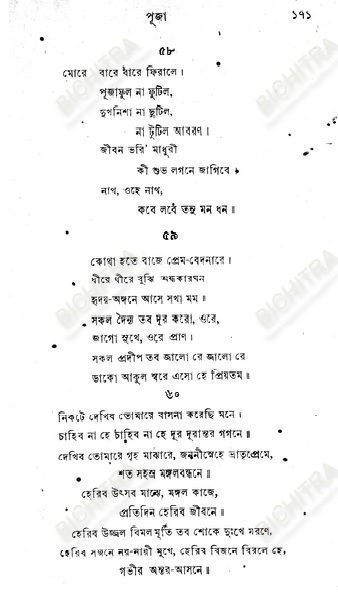 পূজা ১৭১
৫৮
মোরে বারে বারে ফিরালে।
পূজাফুল না ফুটিল,
দুখনিশা না ছুটিল,
না টুটিল আবরণ।
জীবন ভরি' মাধুরী
কী শুভ লগনে জাগিবে,
নাথ, ওহে নাথ,
কবে লবে তনু মন ধন॥
৫৯
কোথা হতে বাজে প্রেম-বেদনারে।
ধীরে ধীরে বুঝি অন্ধকারঘন
হৃদয়-অঙ্গনে আসে সখা মম॥
সকল দৈন্য তব দূর করো, ওরে,
জাগো সুখে, ওরে প্রাণ।
সকল প্রদীপ তব জ্বালো রে জ্বালো রে
ডাকো আকুল স্বরে এসো হে প্রিয়তম॥
৬০
নিকটে দেখিব তোমারে বাসনা করেছি মনে।
চাহিব না হে চাহিব না হে দূর দূরান্তর গগনে॥
দেখিব তোমারে গৃহ মাঝারে, জননীস্নেহে ভ্রাতৃপ্রেমে,
শত সহস্র মঙ্গলবন্ধনে॥
হেরিব উৎসব মাঝে, মঙ্গল কাজে,
প্রতিদিন হেরিব জীবনে॥
হেরিব উজ্জ্বল বিমল মূর্তি তব শোকে দুঃখে মরণে,
হেরিব সজনে নর-নারী মুখে, হেরিব বিজনে বিরলে হে,
গভীর অন্তর-আসনে॥
BICHITRA
BICHITRA
BICHITRA
BICHITRA
BICHITRA
BICHITRA